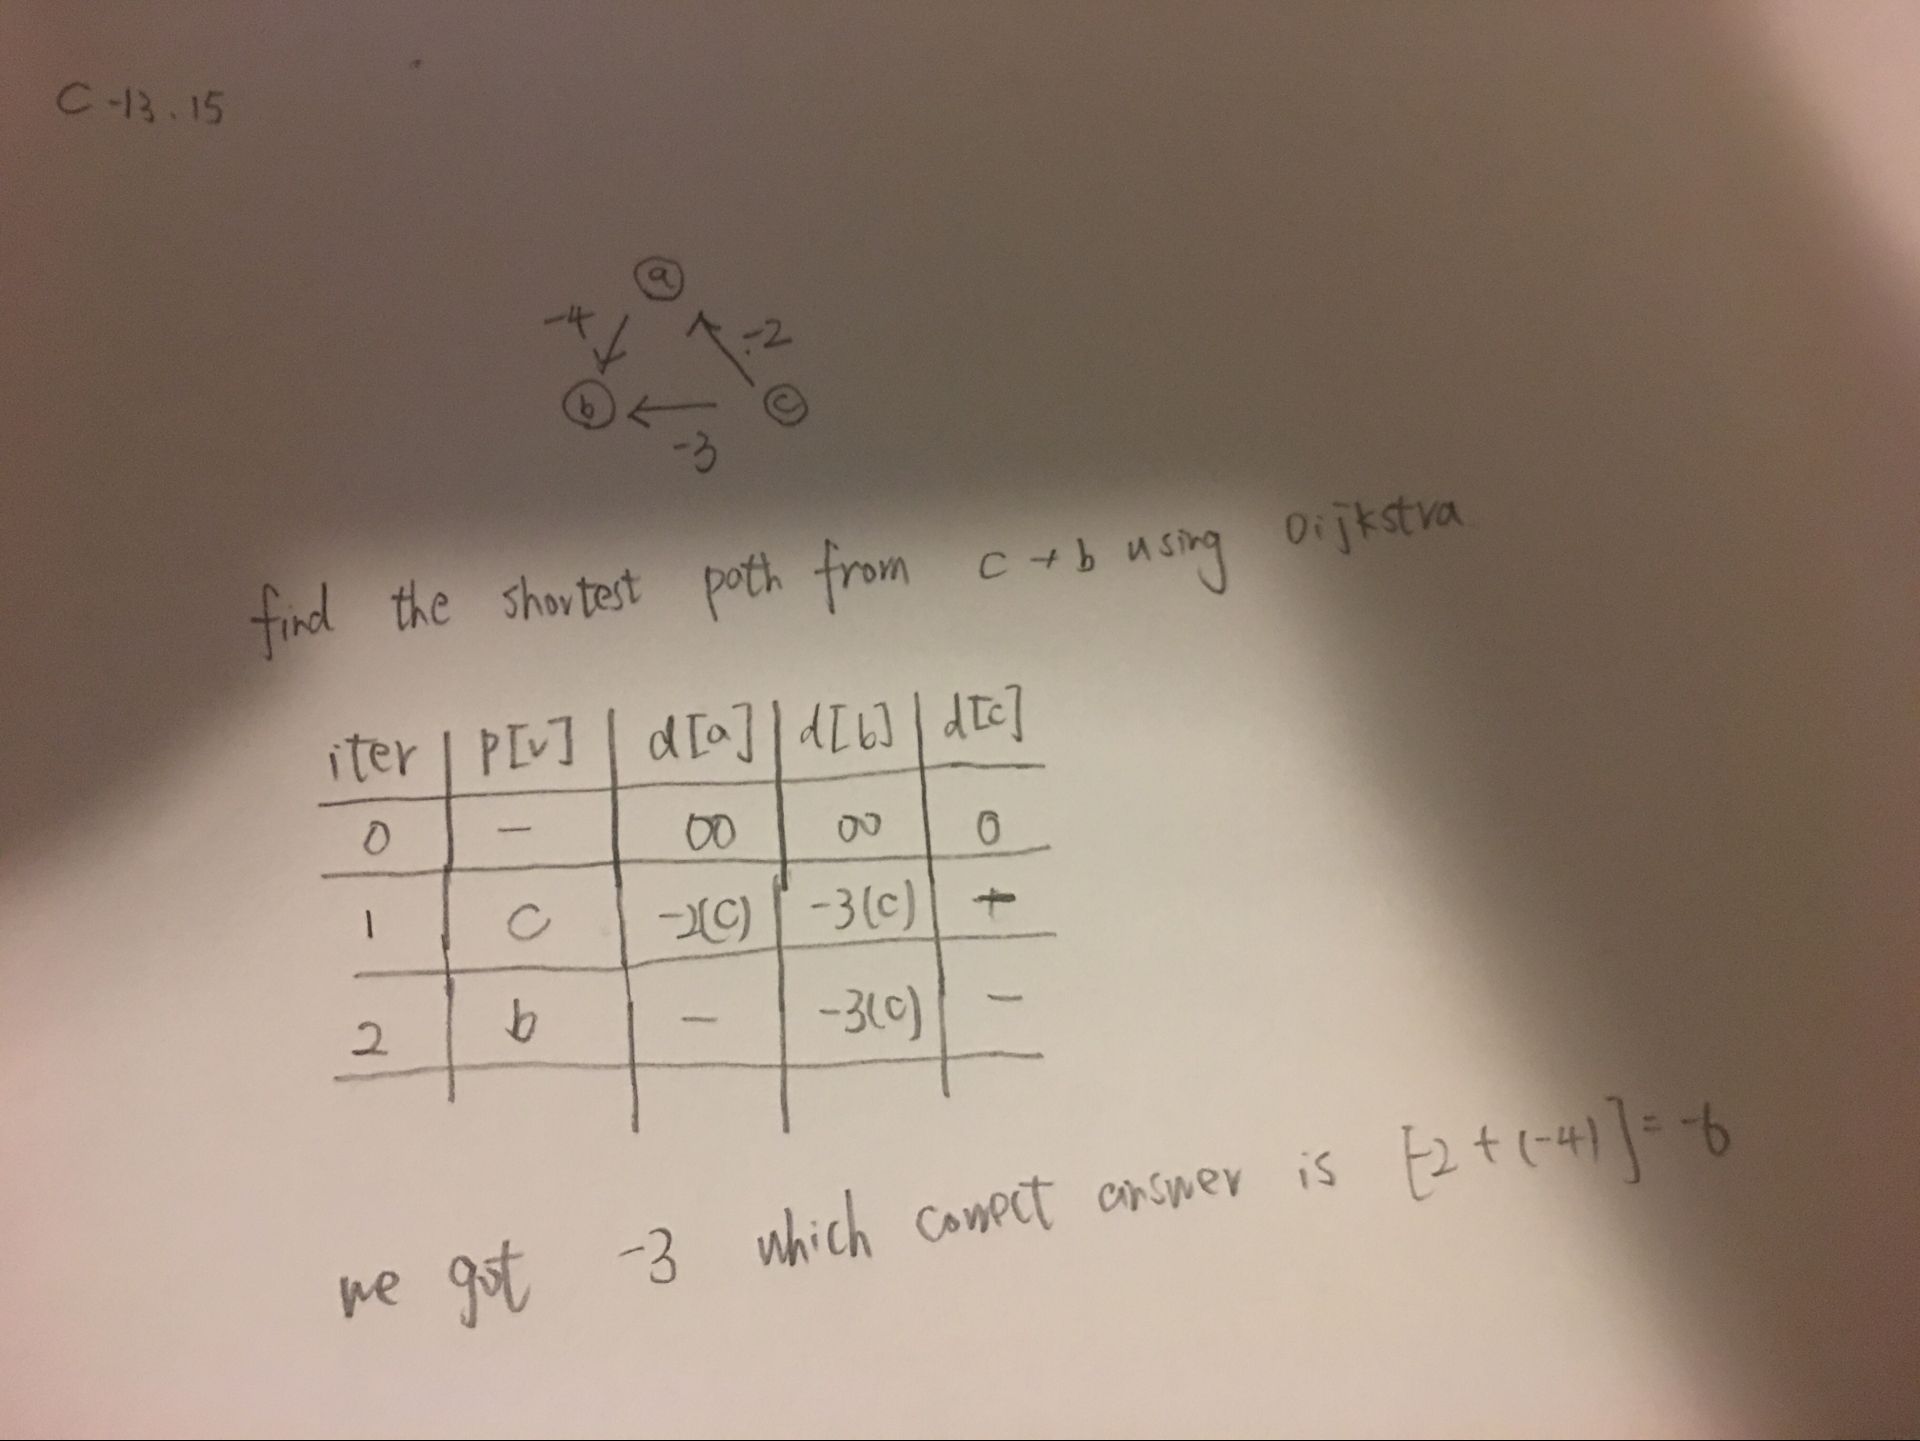 C-13.15
a
-4 -2
b c
-3
find the shortest path from c → b using Dijkstra
iter p[v] d[a] d[b] d[c]
0 - ∞ ∞ 0
1 c -2(c) -3(c) +
2 b - -3(c) -
we got -3 which correct answer is [-2 + (-4)] = -6